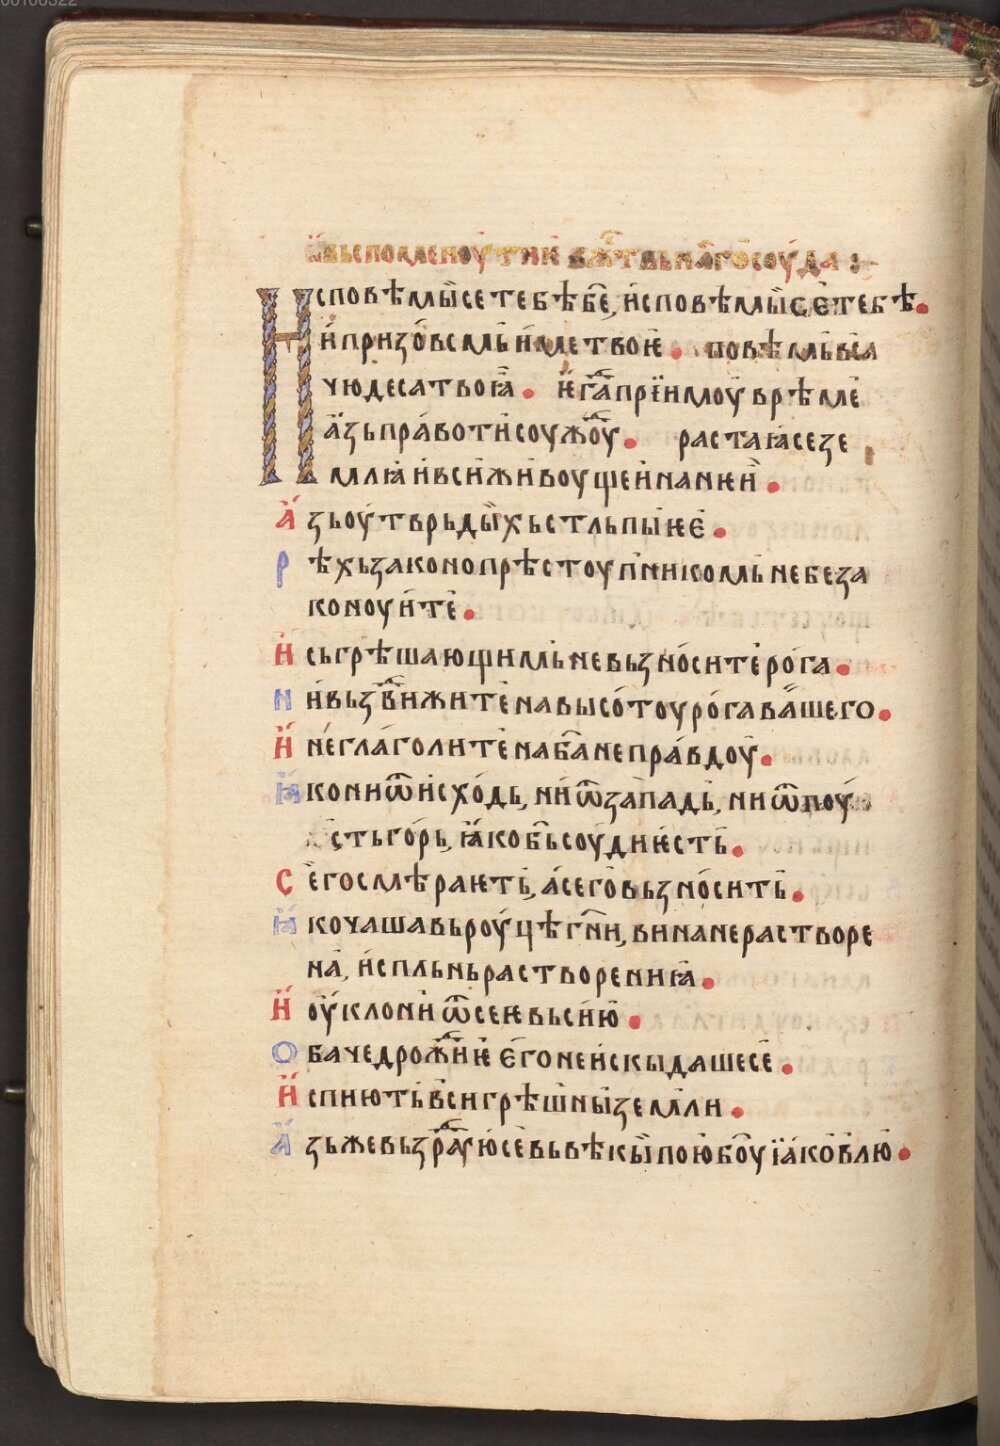 00106322
ѿ въспоменоутиѥ бж҃ствьнаго соуда :~
Исповѣмы се тебѣ бе҃, исповѣмы се тебѣ.
и призовемь име твоѥ. повѣмь вса
чюдеса твоꙗ. ѥгда прїимоу врѣме
азь правоти соужоу. растаꙗ се зе
млꙗ и вси живоущеи на нѥи.
Азь оутврьдыхь стльпы ѥѥ.
Рѣхь законопрѣстоупникомь не беза
коноуите.
И сьгрѣшающимь не вьзносите рога.
Ни вьздвижите на высотоу рога вашего.
И не глаголите на ба҃ неправдоу.
Ꙗко ни ѿ исходь, ни ѿ западь, ни ѿ поу
стъ горь, ꙗко бь҃ соуди ѥсть.
Сего смѣраѥть, а сего вьзносить.
Ꙗко чаша вь роуцѣ гн҃и, вина нерастворе
на, испльнь растворениꙗ.
И оуклони ѿ сеѥ вь сию.
Обаче дрождиѥ ѥго не искыдаше се.
И спиють вси грѣшны земли.
Азь же вьзрадоую се вь вѣкы пою боу҃ їаковлю.